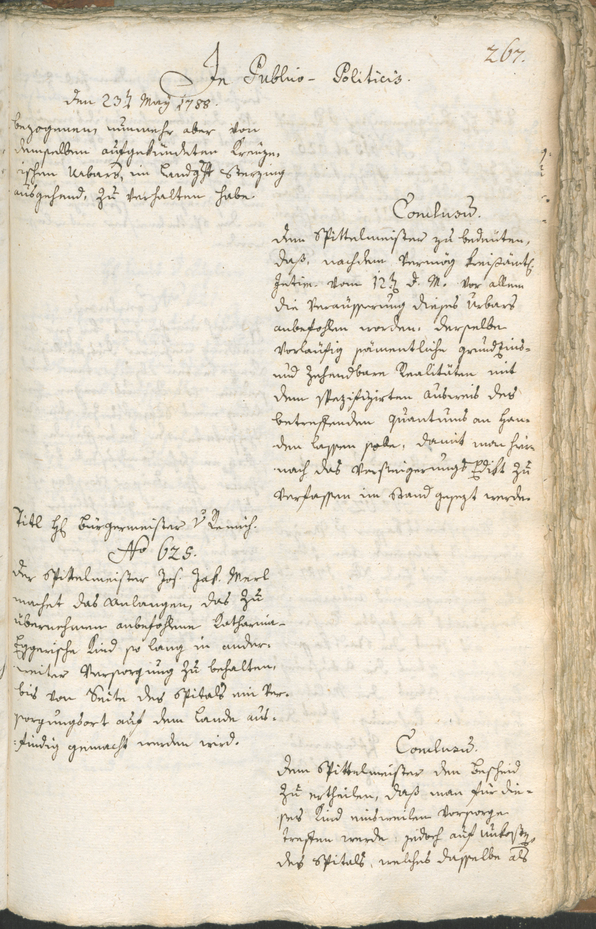 267.
In Publico-Politicis.
den 23t May 1788.
bezogenen, nunmehr aber von
demselben aufgekündeten
Urbars im Landgst Sterzing
ausgehend, zu verhalten habe.
Conclusu.
dem Spittelmeister zu bedeuten,
daß, nachdem vermög kreisämtl.
Intim. vom 12t d. M. vor allem
die Veräusserung dieses Urbars
anbefohlen worden, derselbe
vorläufig sämentliche Grundzins-
und Zehendbare Realitäten mit
dem spezifizirten Ausweis des
betreffenden Quantums an Han-
den lassen solle, damit man hier
nach das Versteigerungs Edikt zu
verfassen im Stand gesezt werde.
Titl H Bürgermeister v Reinich.
No 625.
der Spittelmeister Jos. Jak. Merl
machet das Anlangen, das zu
übernehmen anbefohlene Katharina-
Eggerische Kind so lang in ander-
weiter Versorgung zu behalten,
bis von Seite des Spitals ein Ver-
sorgungsort auf dem Lande aus-
findig gemacht werden wird.
Conclusu.
dem Spittelmeister den Bescheid
zu ertheilen, daß man für die-
ses Kind einsweilen Vorsorge
treffen werde, jedoch auf Unkosten
des Spitals, welches dasselbe als